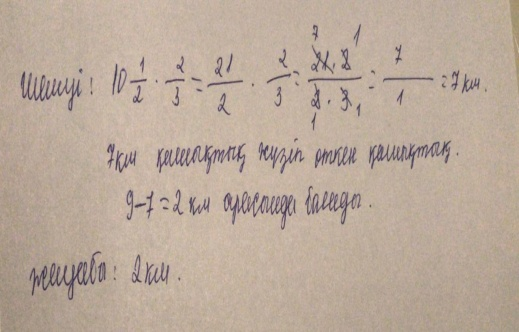 Шешуі: 10 1/2 · 2/3 = 21/2 · 2/3 = 21·2/2·3 = 7/1 = 7 км.
7км қашықтық жүзіп өткен қашықтық.
9-7=2 км арасында болады.
жауабы: 2км.